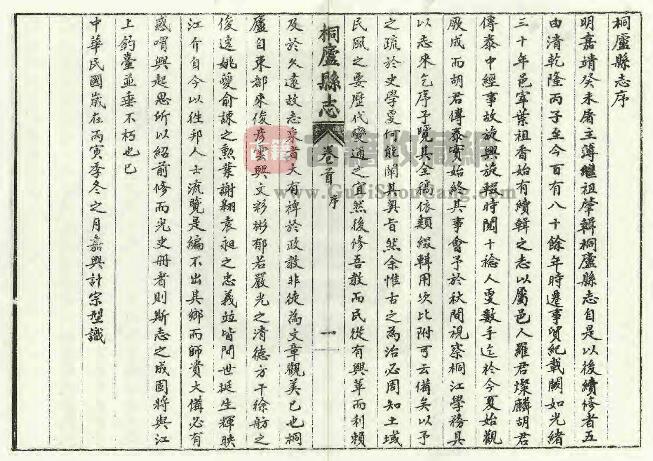 桐廬縣志序
明嘉靖癸未屠主薄繼祖肇輯桐廬縣志自是以後續修者五
由清乾隆丙子至今百有八十餘年時遷事貿紀載闕如光緒
三十年邑宰葉祖香始有續輯之志以屬邑人羅君燦麟胡君
傳泰中經事故旋興旋輟時閱十稔人更數手迄於今夏始觀
厥成而胡君傳泰實始終其事會予於秋間視察桐江學務具
以志來乞序予覽其全稿依類綴輯用次比附可云備矣以予
之疏於史學曼何能闡其奥旨然余惟古之為治必周知土域
民風之要歷代變通之宜然後修吾教而民從有興革而利賴
桐廬縣志
卷首
序
一
及於久遠故志乘者大有裨於政教非徒為文章觀美已也桐
廬自東都來俊彥雲興文彩彬郁若嚴光之清德方干徐舫之
俊逸姚夔俞諫之勳業謝翱袁昶之忠義並皆間世挺生輝映
江介自今以往邦人士流覽是編不出其鄉而師資大備必有
感喟興起思所以紹前修而光史册者則斯志之成固將與江
上釣臺並垂不朽也已
中華民國歲在丙寅季冬之月嘉興計宗型識
古籍收藏網
www.GuJiShouCang.com